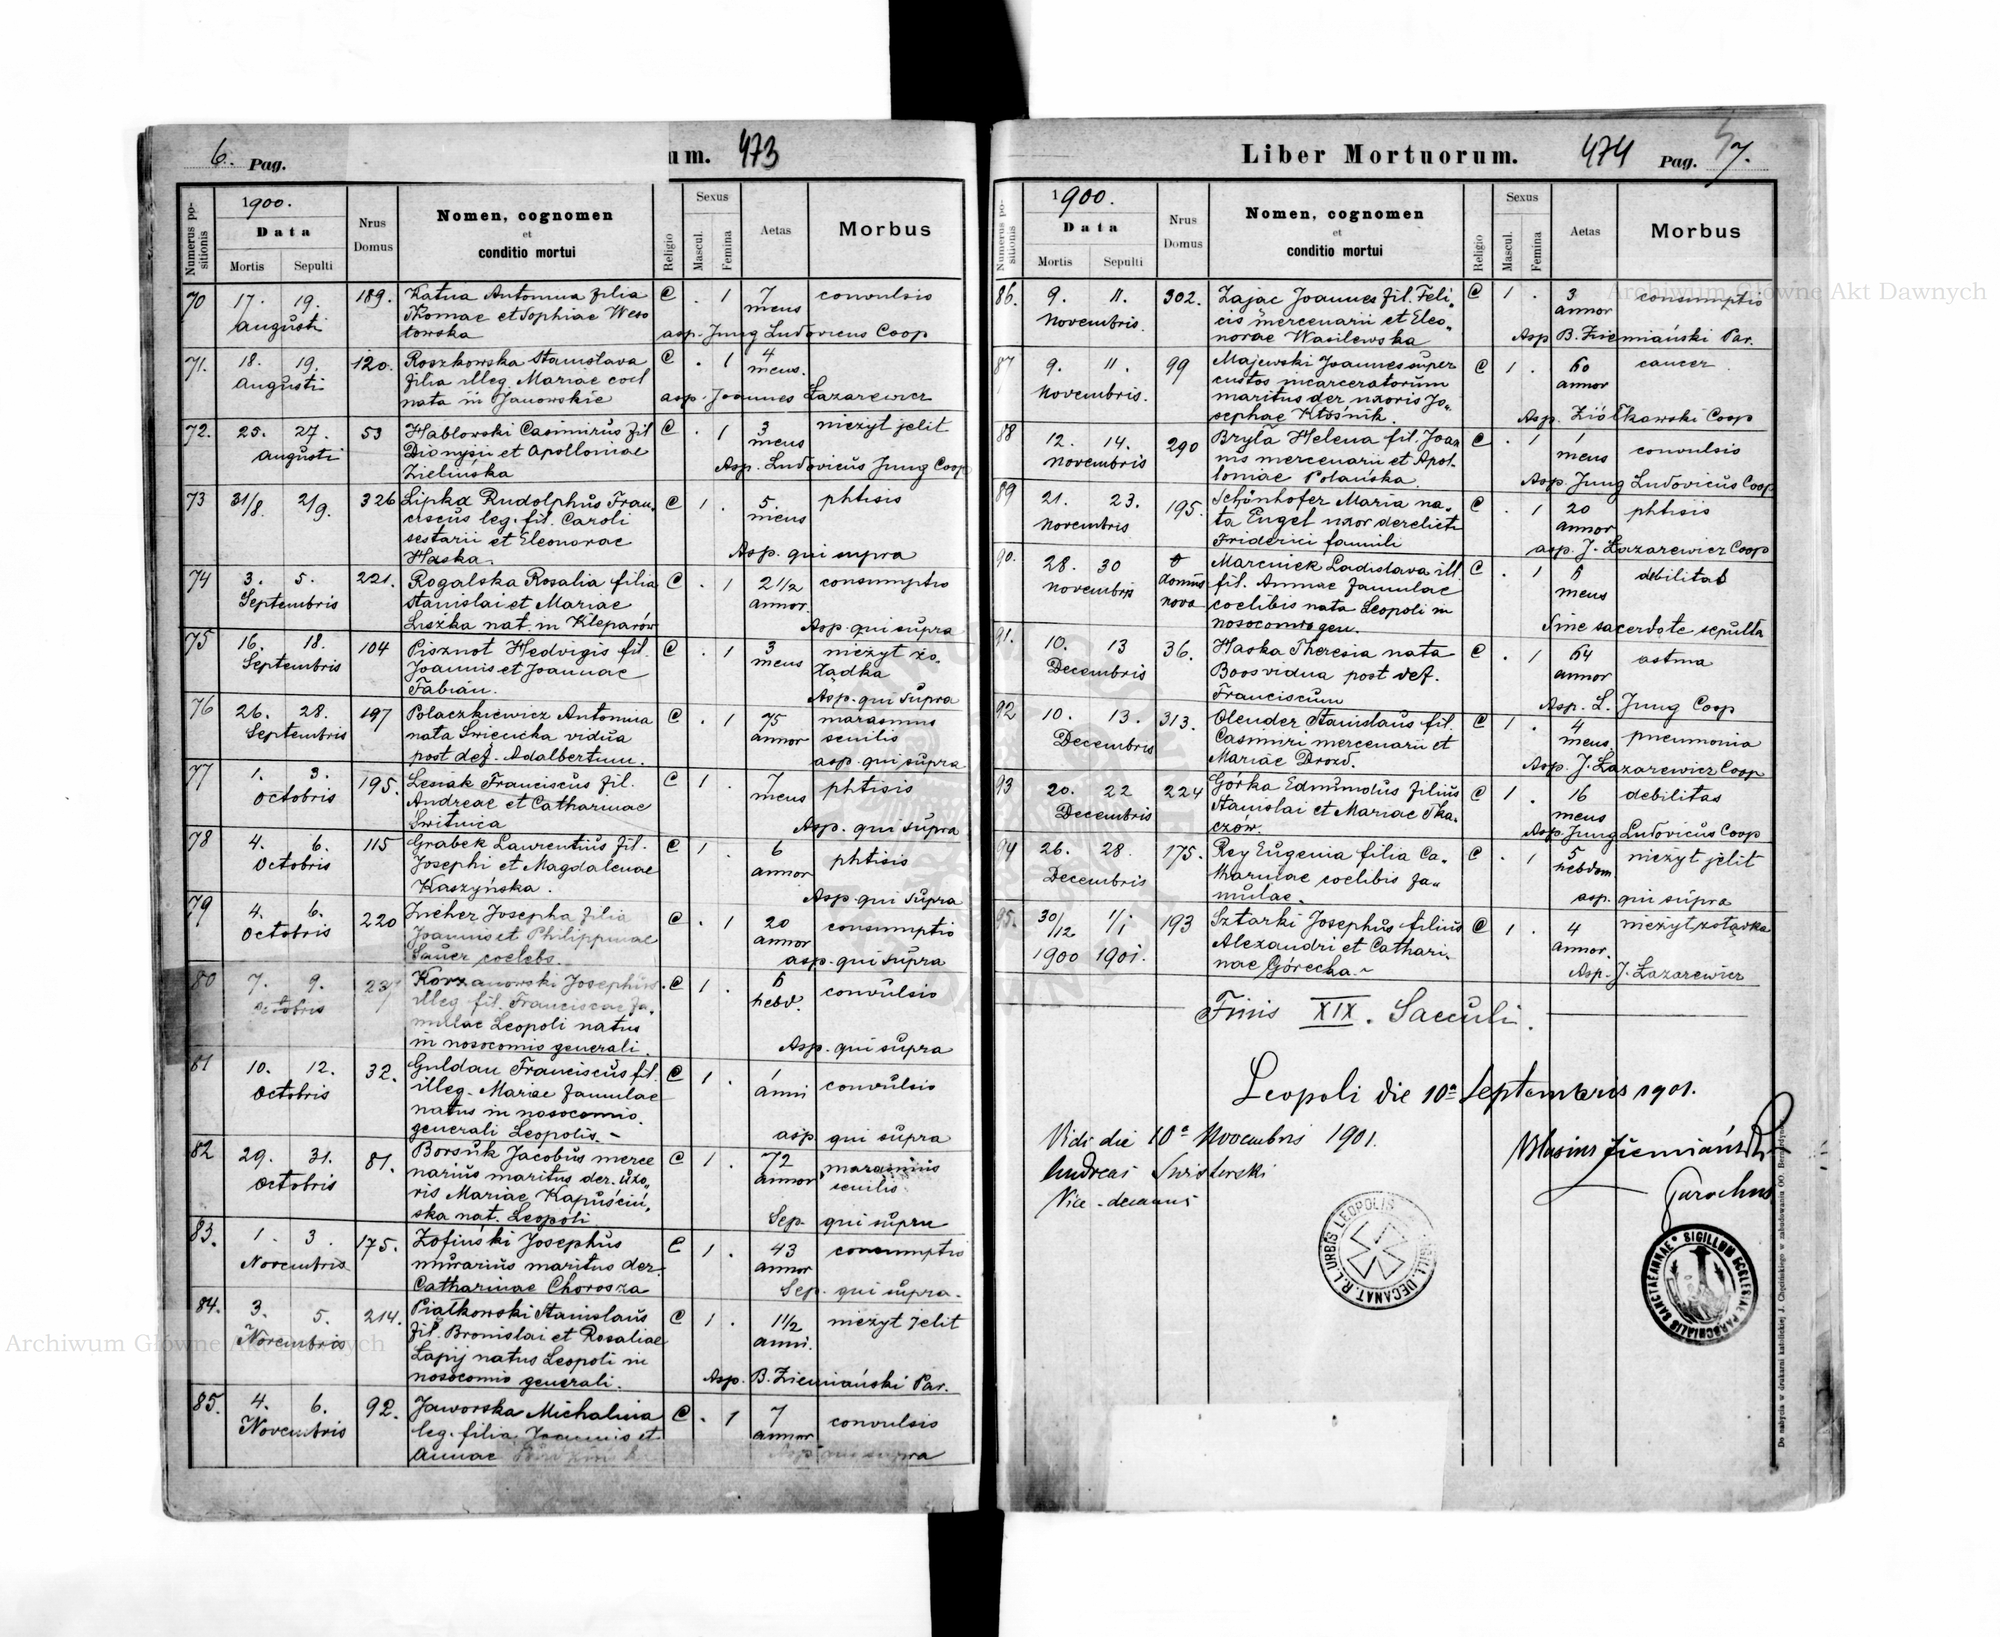 6. Pag.
um. 473
Numerus positionis
1900.
Data
Mortis Sepulti
Nrus Domus
Nomen, cognomen
et
conditio mortui
Religio
Sexus
Mascul. Femina
Aetas
Morbus
70 17. 19. 189. Katna Antonina filia @ . 1 7 convulsio
augusti Thomae et Sophiae Weso mens
łowska asp. Jung Ludovicus Coop
71. 18. 19. 120. Roszkowska Stanislava @ . 1 4
augusti filia illeg. Mariae coel mens.
nata in Janowskie asp. Joannes Łazarewicz
72. 25. 27. 53 Hablowski Casimirus fil @ . 1 3 nieżyt jelit
augusti Dionysii et Apolloniae mens
Zielińska Asp. Ludovicus Jung Coop
73 31/8. 2/9. 326 Lipka Rudolphus Fran- @ 1 . 5 phtisis
ciscus leg. fil. Caroli mens
sestarii et Eleonorae
Haska. Asp. qui supra
74 3. 5. 221. Rogalska Rosalia filia @ . 1 2 1/2 consumptio
Septembris Stanislai et Mariae annor.
Liszka nat. in Kleparów Asp. qui supra
75 16. 18. 104 Pisznot Hedvigis fil. @ . 1 3 nieżyt żo-
Septembris Joannis et Joannae mens łądka
Fabian. Asp. qui supra
76 26. 28. 197 Polaczkiewicz Antonina @ . 1 75 marasmus
Septembris nata Swiencka vidua annor senilis
post def. Adalbertum. asp. qui supra
77 1. 3. 195. Lesiak Franciscus fil. @ 1 . 7 phtisis
octobris Andreae et Catharinae mens
Switnica Asp. qui supra
78 4. 6. 115 Grabek Laurentius fil. @ 1 . 6 phtisis
octobris Josephi et Magdalenae annor
Kaszyńska. Asp. qui supra
79 4. 6. 220 Zucher Josepha filia @ . 1 20 consumptio
octobris Joannis et Philippinae annor
Sauer coelebs. asp. qui supra
80 7. 9. Korzanowski Josephus @ 1 . 6 convulsio
octobris illeg. fil. Franciscae fa- hebd.
mulae Leopoli natus
in nosocomio generali. Asp. qui supra
81 10. 12. 32. Guldan Franciscus fil. @ 1 . convulsio
octobris illeg. Mariae famulae anni
natus in nosocomio
generali Leopolis. asp. qui supra
82 29. 31. 81. Borsuk Jacobus merce @ 1 . 72 marasmus
octobris narius maritus der. uxo- annor senilis.
ris Mariae Kapuściń-
ska nat. Leopoli Sep. qui supra
83. 1. 3. 175. Zofiński Josephus @ 1 . 43 consumptio
Novembris murarius maritus der annor
Catharinae Chorosza Sep. qui supra.
84. 3. 5. 214. Piatkowski Stanislaus @ 1 . 1 1/2 nieżyt jelit
Novembris fil. Bronislai et Rosaliae anni.
Łapij natus Leopoli in
nosocomio generali. Asp. B. Ziemiański Par.
85. 4. 6. 92. Jaworska Michalina @ . 1 7 convulsio
Novembris leg. filia Joannis et annor
Annae Asp. qui supra
Liber Mortuorum. 474 Pag. 7.
Numerus positionis
1900.
Data
Mortis Sepulti
Nrus Domus
Nomen, cognomen
et
conditio mortui
Religio
Sexus
Mascul. Femina
Aetas
Morbus
86. 9. 11. 302. Zając Joannes fil. Feli- @ 1 . 3 consumptio
Novembris. cis mercenarii et Eleo- annor
norae Wasilewska Asp B. Ziemiański Par.
87 9. 11. 99 Majewski Joannes super @ 1 . 60 cancer
Novembris. custos incarceratorum annor
maritus der uxoris Jo-
sephae Kłośnik. Asp. Ziółkowski Coop
88 12. 14. 290 Bryła Helena fil. Joan @ . 1 1 convulsis
Novembris nis mercenarii et Apol- mens
loniae Polańska. Asp. Jung Ludovicus Coop
89 21. 23. 195. Schönhofer Maria na- @ . 1 20 phtisis
Novembris ta Engel uxor derelicta annor
Friderici famili asp. J. Łazarewicz Coop
90. 28. 30 domus nova Marciniek Ladislava ill. @ . 1 6 debilitas
Novembris fil. Annae famulae mens
coelibis nata Leopoli in
nosocomio gen. Sine sacerdote sepulta
91. 10. 13 36. Haska Theresia nata @ . 1 64 astma
Decembris Boos vidua post def. annor
Franciscum Asp. L. Jung Coop
92 10. 13. 313. Olender Stanislaus fil. @ 1 . 4 pneumonia
Decembris Casimiri mercenarii et mens
Mariae Drozd. Asp. J. Łazarewicz Coop
93 20. 22 224 Górka Edmundus filius @ 1 . 16 debilitas
Decembris Stanislai et Mariae Tka- mens
czów. Asp. Jung Ludovicus Coop
94 26. 28. 175. Rey Eugenia filia Ca- @ . 1 5 nieżyt jelit
Decembris tharinae coelibis fa- hebdom
mulae. asp. qui supra
95. 30/12 1/1 193 Sztarki Josephus filius @ 1 . 4 nieżyt żołądka
1900 1901. Alexandri et Cathari- annor.
nae Górecka. Asp. J. Łazarewicz
Finis XIX. Saeculi.
Leopoli die 10a Septembris 1901.
Vidi die 10a Novembris 1901.
Andreas
Vice-decanus
Blasius Ziemiański
Parochus
SIGILL. DECANAT. R. L. URBIS LEOPOLIS
SIGILLUM ECCLESIAE PAROCHIALIS SANCTAE ANNAE
Do nabycia w drukarni katolickiej J. Chęcińskiego w zabudowaniu OO. Bernardynów
Archiwum Główne Akt Dawnych
Archiwum Główne Akt Dawnych